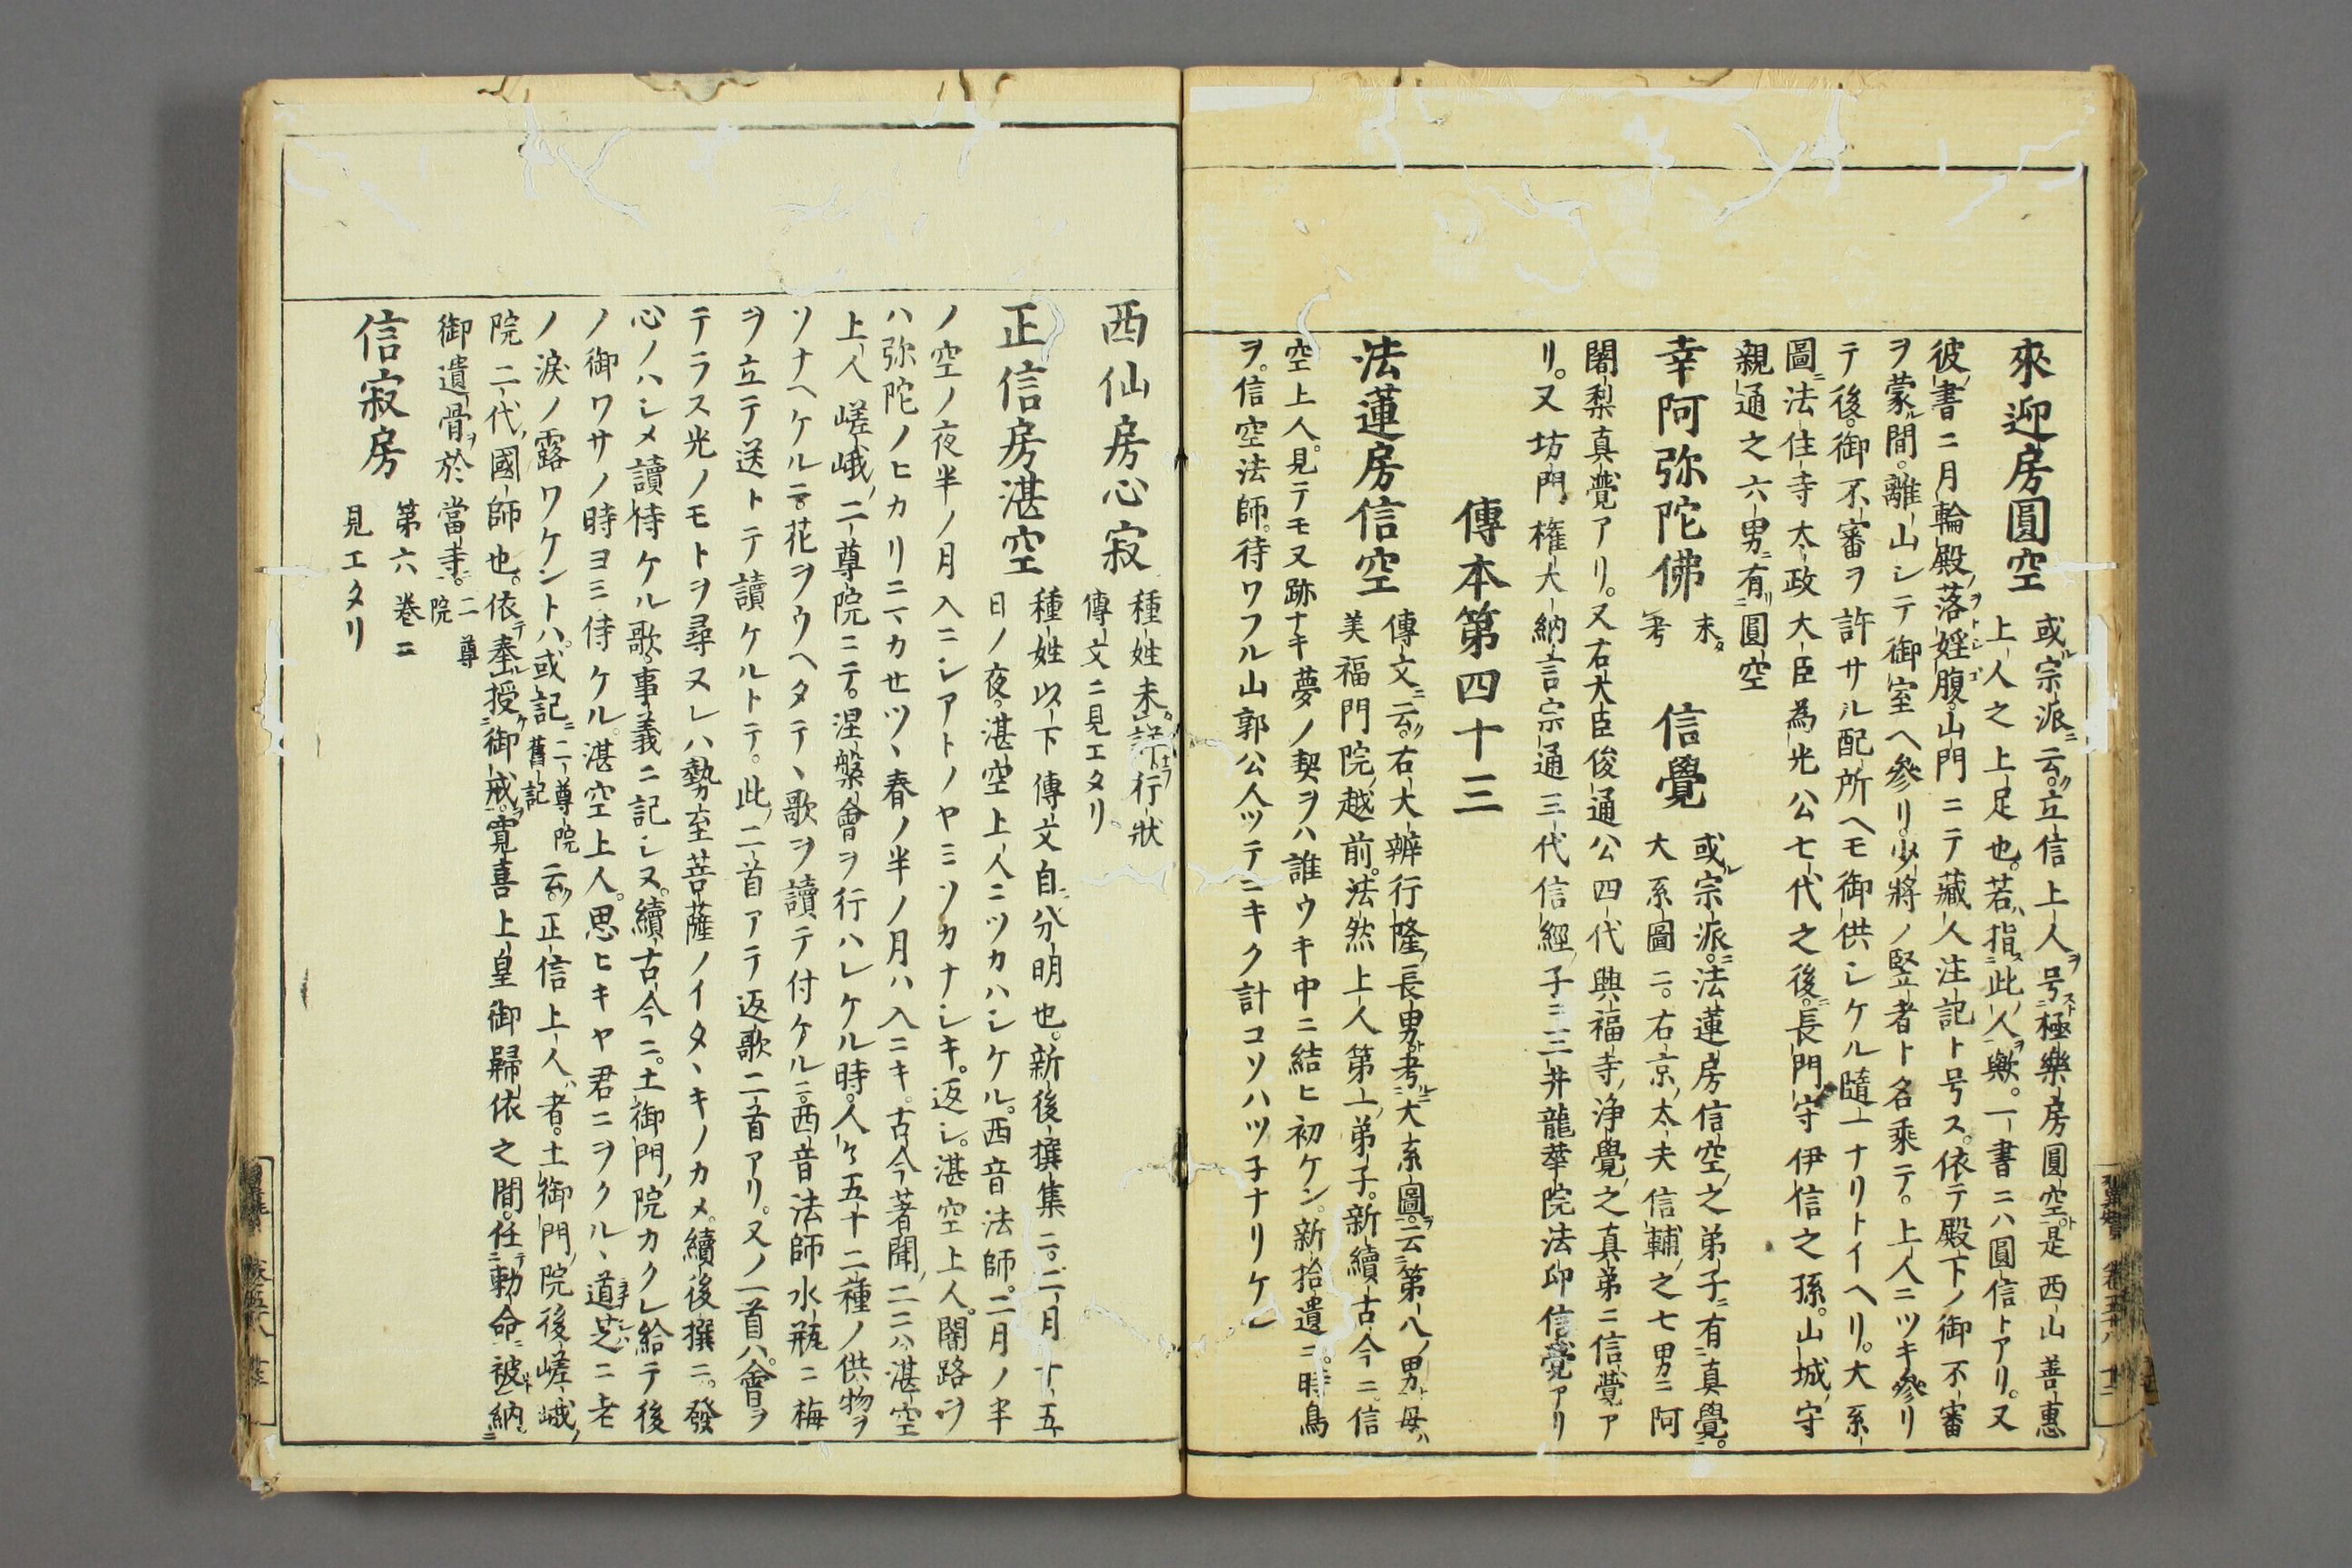 來迎房圓空
或ル宗派ニ云ク。立信上人ヲ号ス極樂房圓空ト。是西山善惠
上人之上足也。若ハ指ス此ノ人ヲ歟。一書ニハ圓信トアリ。又
彼ノ書ニ月輪殿ノ落婬腹。山門ニテ藏人注記ト号ス。依テ殿下ノ御不審
ヲ蒙ル間。離山シテ御室ヘ參リ。少將ノ竪者ト名乘テ。上人ニツキ參リ
テ後。御不審ヲ許サル配所ヘモ御供シケル隨一ナリトイヘリ。大系
圖ニ法住寺太政大臣為光公七代之後ニ。長門守伊信之孫。山城ノ守
親通之六男ニ有リ圓空
幸阿弥陀佛
未タ考
信覺
或ル宗派ニ。法蓮房信空之弟子ニ有真覺。
大系圖ニ。右京ノ太夫信輔ノ之七男ニ阿
闍梨真覺アリ。又右大臣俊通公四代興福寺ノ浄覺之真弟ニ信覺ア
リ。又坊門權大納言宗通三代信經ノ子ニ三井龍華院法印信覺アリ
傳本第四十三
法蓮房信空
傳文ニ云ク右大辨行隆ノ長男ト考ルニ大系圖ヲ云第八ノ男ト母ハ
美福門院ノ越前。法然上人第一ノ弟子。新續古今ニ。信
空上人。見テモ又跡ナキ夢ノ契ヲハ誰ウキ中ニ結ヒ初ケン。新拾遺ニ。時鳥
ヲ。信空法師。待ワフル山郭公人ツテニキク計コソハツ子ナリケレ
西仙房心寂
種姓未詳行狀
傳文ニ見エタリ
正信房湛空
種姓以下傳文自ニ分明也。新後撰集ニ。二月十五
日ノ夜。湛空上人ニツカハシケル。西音法師。二月ノ半
ノ空ノ夜半ノ月入ニシアトノヤミソカナシキ。返シ。湛空上人。闇路ヲ
ハ弥陀ノヒカリニマカセツヽ春ノ半ノ月ハ入ニキ。古今著聞ノ二ニハ湛空
上人嵯峨ノ二尊院ニテ。涅槃會ヲ行ハレケル時。人々五十二種ノ供物ヲ
ソナヘケルニ。花ヲウヘタテヽ歌ヲ讀テ付ケルニ。西音法師水瓶ニ梅
ヲ立テ送トテ讀ケルトテ。此ノ二首アテ返歌二首アリ。又ノ一首ハ。會ヲ
テラス光ノモトヲ尋ヌレハ勢至菩薩ノイタヽキノカメ。續後撰ニ。發
心ノハシメ讀侍ケル歌。事義ニ記シヌ。續古今ニ。土御門ノ院カクレ給テ後
ノ御ワサノ時ヨミ侍ケル。湛空上人。思ヒキヤ君ニヲクルヽ道芝ニ老
ノ淚ノ露ワケントハ。或記ニ二尊院舊記云ク。正信上人ハ者。土御門ノ院後嵯峨ノ
院二代ノ國師也。依テ奉ル授ケ御戒ヲ。寛喜上皇御歸依之間。任テ勅命ニ被納メ
御遺骨ヲ於當寺ニ。二尊院
信寂房
第六卷ニ
見エタリ